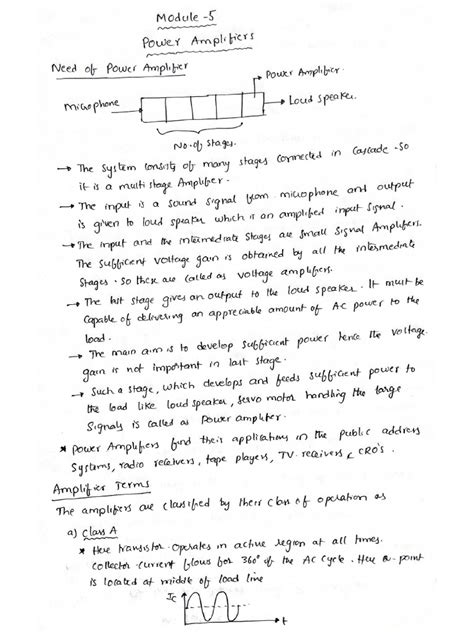 Module -5
Power Amplifiers
Need of Power Amplifier
Power Amplifier.
Microphone
Loud Speaker.
No. of Stages.
→ The System consists of many stages connected in Cascade. So
it is a multi stage Amplifier.
→ The input is a sound signal from microphone and output
is given to loud speaker which is an amplified input Signal.
→ The input and the intermediate stages are small Signal Amplifiers.
The sufficient voltage gain is obtained by all the intermediate
Stages. So these are called as voltage amplifiers.
→ The last stage gives an output to the loud speaker. It must be
Capable of delivering an appreciable amount of AC power to the
load.
→ The main aim is to develop sufficient power hence the voltage
gain is not important in last stage.
→ Such a stage, which develops and feeds sufficient power to
the load like loud speaker, servo motor handling the large
Signals is called as Power amplifier.
* Power Amplifiers find their applications in the public address
Systems, radio receivers, tape players, T.V. receivers & CRO's.
Amplifier Terms
The amplifiers are classified by their class of operation as
a) Class A
* Here transistor operates in active region at all times.
collector current flows for 360° of the AC cycle. Here Q-point
is located at middle of load line
Ic
t